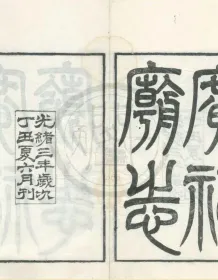 廣福
廟志
光緒三年歲次
丁丑夏六月刊